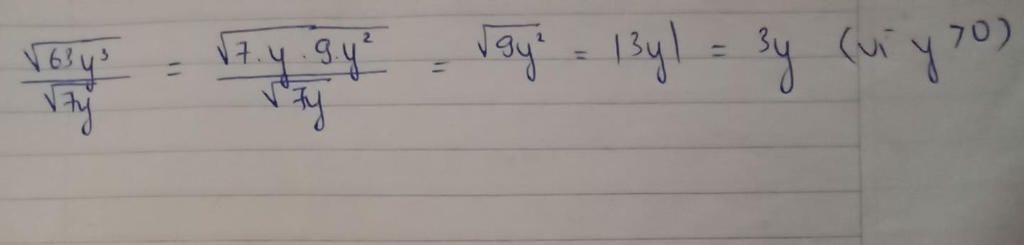 √63y³/√7y = √7.y.9.y²/√7y = √9y² = |3y| = 3y (vì y>0)